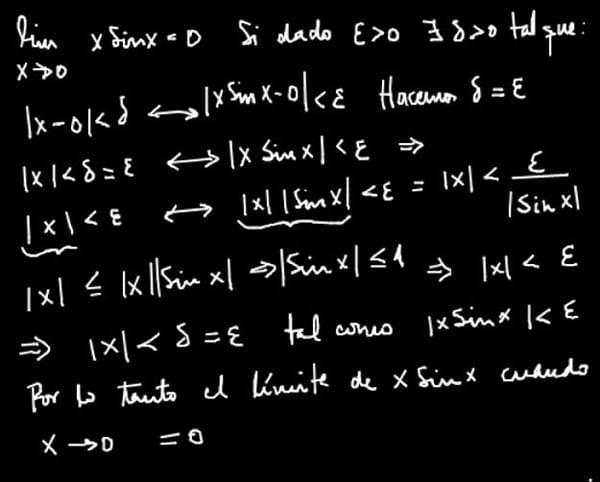 lim x Sinx = 0 Si dado ε>0 ∃ δ>0 tal que:
x→0
|x-0|<δ ⟷ |x Sin x-0|<ε Hacemos δ = ε
|x|<δ=ε ⟷ |x Sin x|<ε ⇒
|x|<ε ⟷ |x| |Sin x| <ε = |x| < ε/|Sin x|
|x| ≤ |x||Sin x| ⇒ |Sin x| ≤ 1 ⇒ |x| < ε
⇒ |x| < δ = ε tal como |x Sin x|< ε
Por lo tanto el límite de x Sin x cuando
x →0 = 0